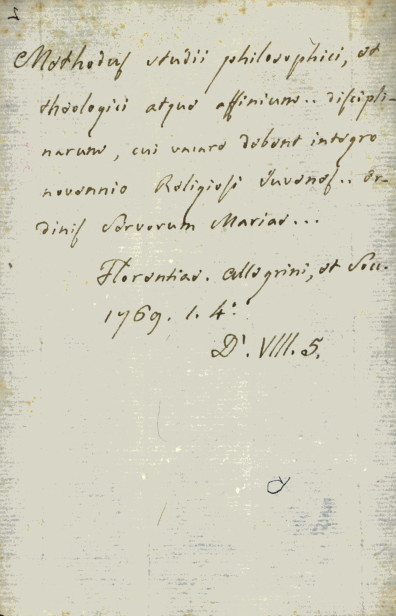 Methodus studii philosophici, et
theologici atque affinium.. discipli-
narum, cui vacare debent integro
novennio Religiosi Juvenes.. or-
dinis Servorum Mariae...
Florentiae. Allegrini, et Socc.
1769. 1. 4°.
D'. VIII. 5.